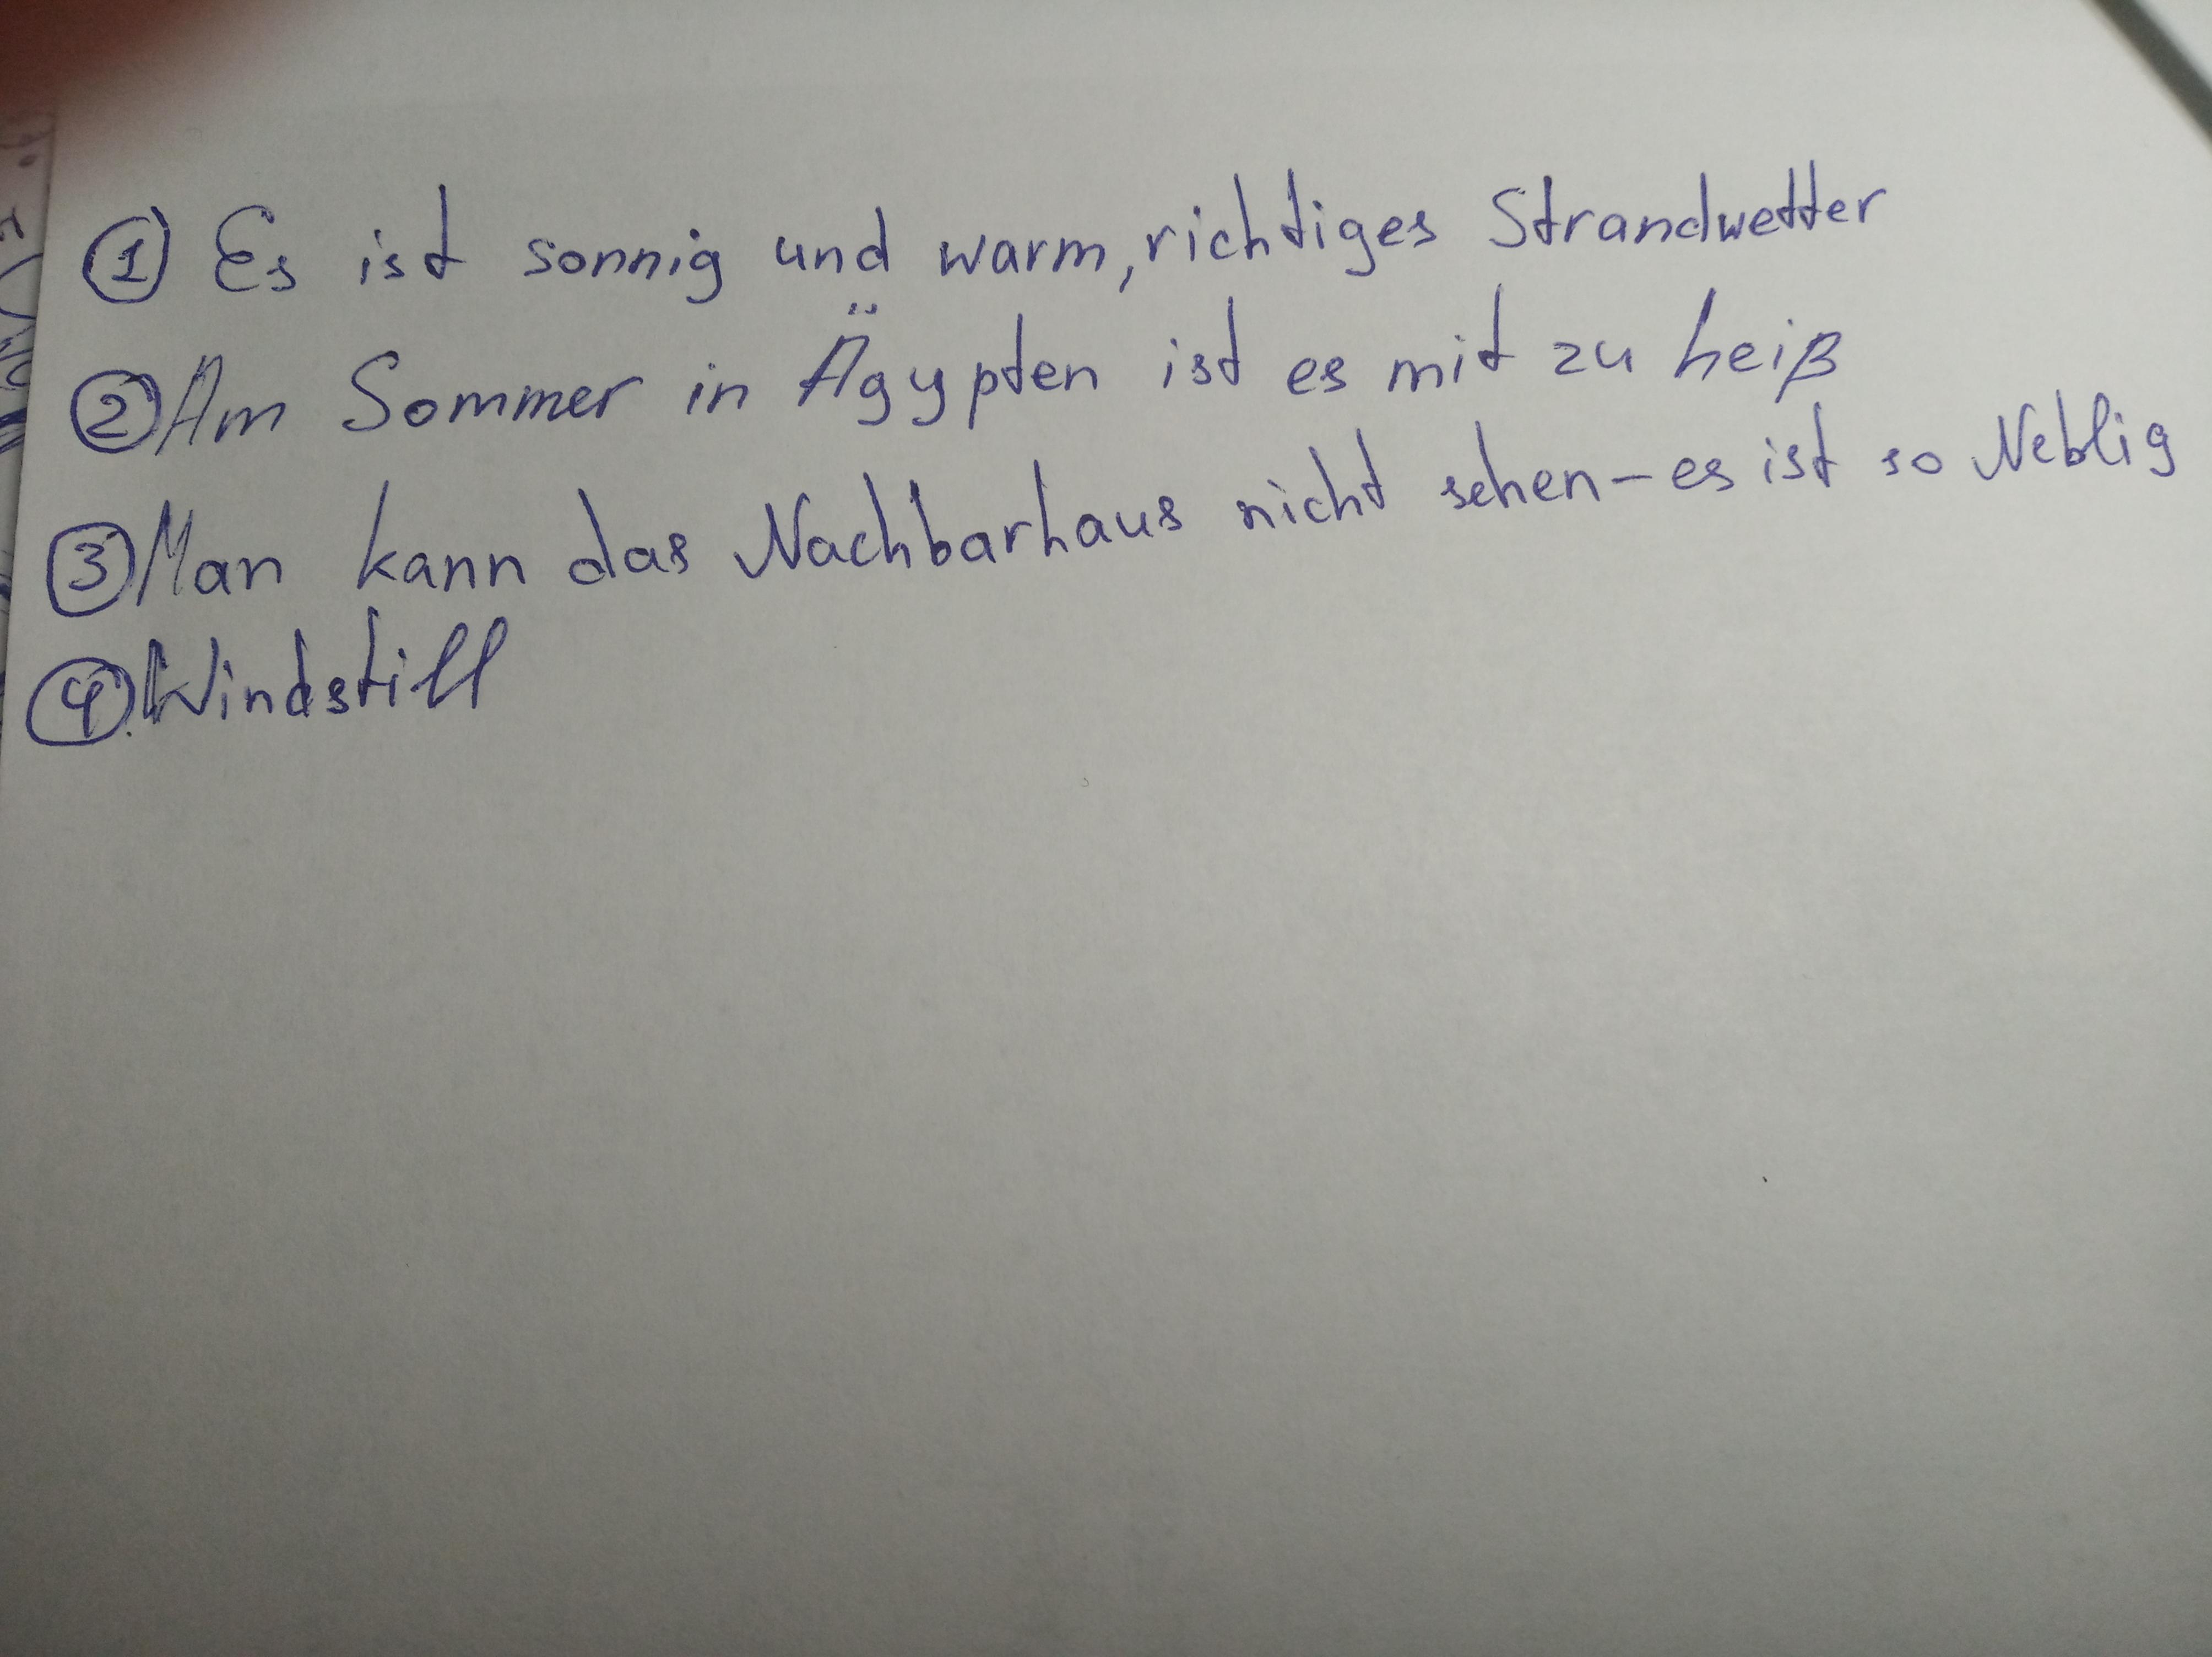 ① Es ist sonnig und warm, richtiges Strandwetter
② Am Sommer in Ägypten ist es mit zu heiß
③ Man kann das Nachbarhaus nicht sehen – es ist so Neblig
④. Windstill